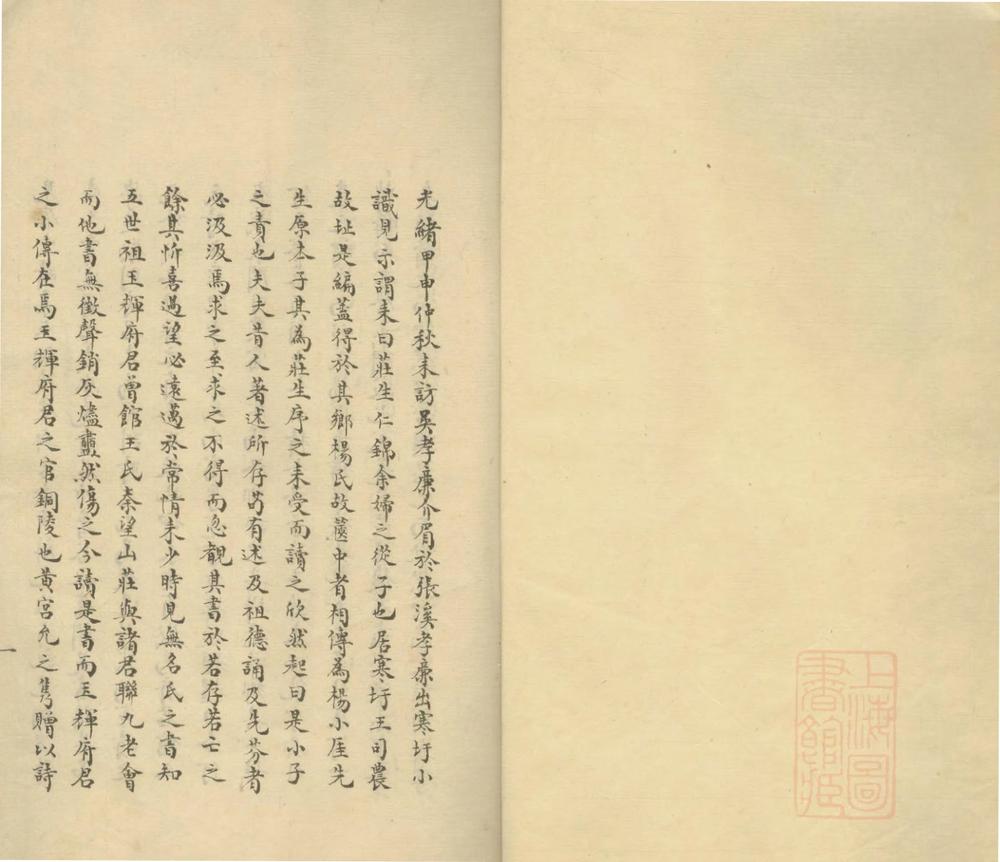 光緒甲申仲秋耒訪吳孝廉介眉於張溪孝廉出寒圩小
識見示謂耒曰莊生仁錦余婦之從子也居寒圩王司農
故址是編蓋得於其鄉楊氏故篋中者相傳為楊小厓先
生原本子其為莊生序之耒受而讀之欣然起曰是小子
之責也夫夫昔人著述所存苟有述及祖德誦及先芬者
必汲汲焉求之至求之不得而忽覩其書於若存若亡之
餘其忻喜過望必遠過於常情耒少時見無名氏之書知
五世祖玉輝府君曾館王氏秦望山莊與諸君聯九老會
而他書無徵聲銷灰燼衋然傷之今讀是書而玉輝府君
之小傳在焉玉輝府君之官銅陵也黃宮允之雋贈以詩
一
上海圖
書館藏